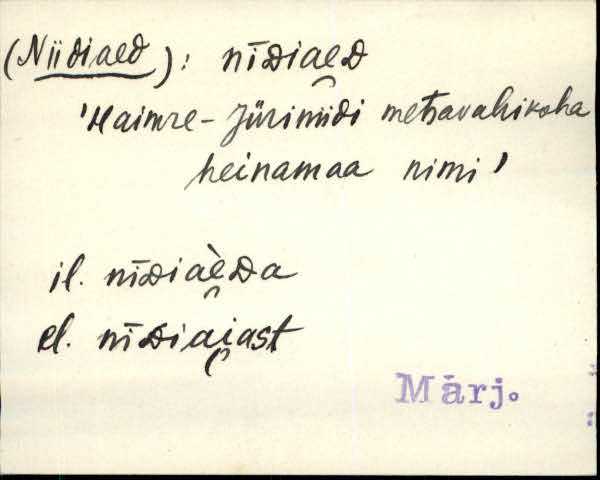 (Niidiaed): nīᴅiae̯ᴅ
'Haimre-Jürimiidi metsavahikoha
heinamaa nimi'
il. nīᴅiaè̯ᴅa
el. nīᴅiai̯ast
Märj.